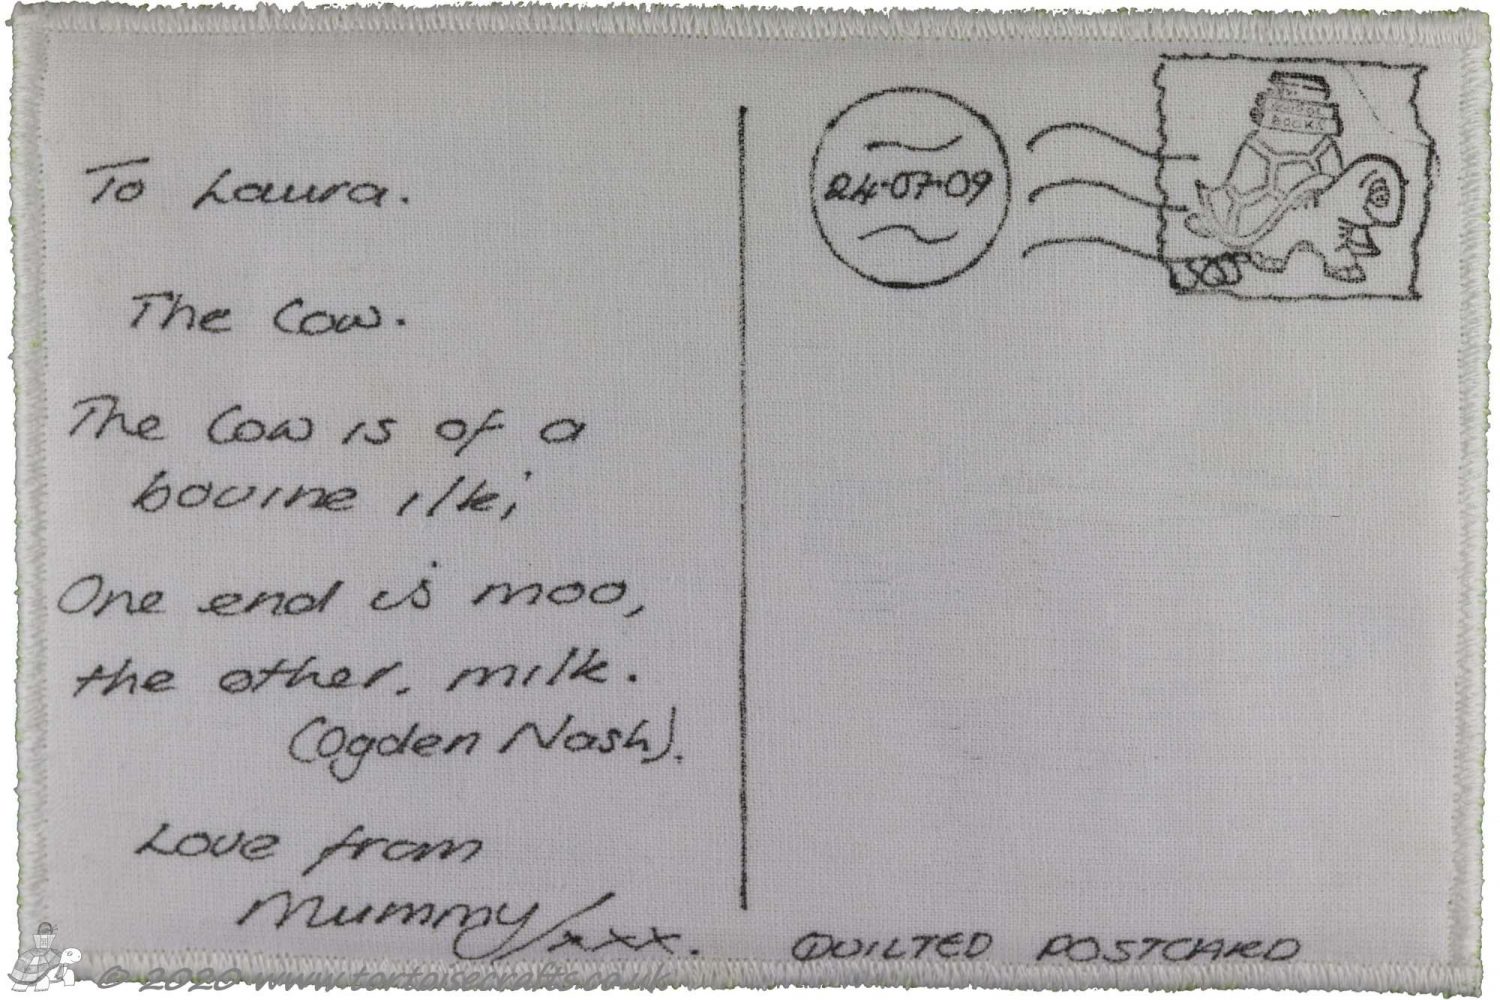 To Laura.
The Cow.
The Cow is of a
bovine ilk;
One end is moo,
the other, milk.
(Ogden Nash).
Love from
Mummy/xxx.
24·07·09
SCHOOL
BOOKS
QUILTED POSTCARD
© 2020 www.tortoisecrafts.co.uk